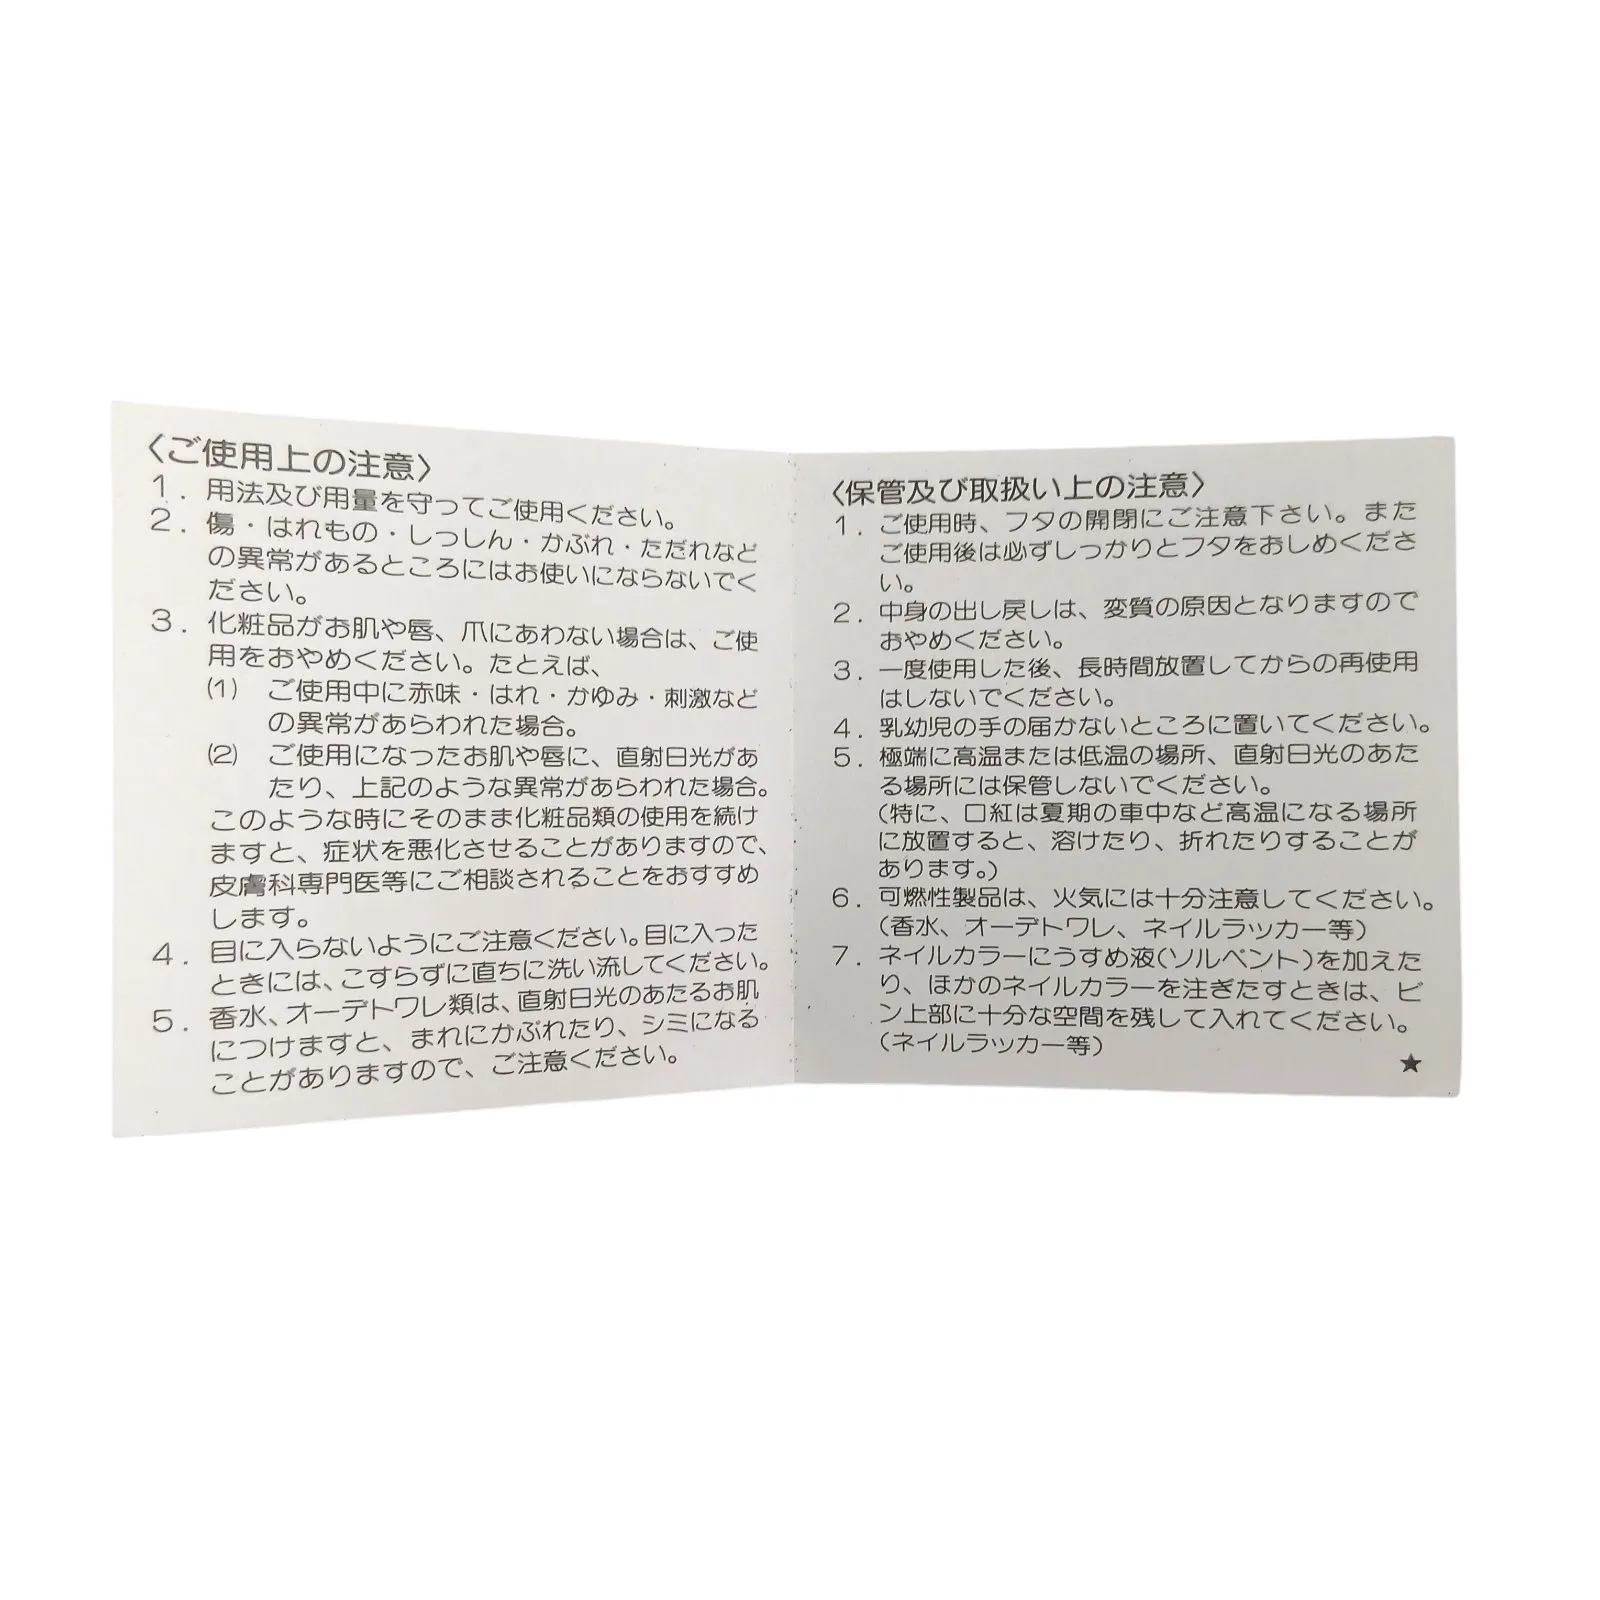 〈ご使用上の注意〉
1．用法及び用量を守ってご使用ください。
2．傷・はれもの・しっしん・かぶれ・ただれなど
の異常があるところにはお使いにならないでく
ださい。
3．化粧品がお肌や唇、爪にあわない場合は、ご使
用をおやめください。たとえば、
(1) ご使用中に赤味・はれ・かゆみ・刺激など
の異常があらわれた場合。
(2) ご使用になったお肌や唇に、直射日光があ
たり、上記のような異常があらわれた場合。
このような時にそのまま化粧品類の使用を続け
ますと、症状を悪化させることがありますので、
皮膚科専門医等にご相談されることをおすすめ
します。
4．目に入らないようにご注意ください。目に入った
ときには、こすらずに直ちに洗い流してください。
5．香水、オーデトワレ類は、直射日光のあたるお肌
につけますと、まれにかぶれたり、シミになる
ことがありますので、ご注意ください。
〈保管及び取扱い上の注意〉
1．ご使用時、フタの開閉にご注意下さい。また
ご使用後は必ずしっかりとフタをおしめくださ
い。
2．中身の出し戻しは、変質の原因となりますので
おやめください。
3．一度使用した後、長時間放置してからの再使用
はしないでください。
4．乳幼児の手の届かないところに置いてください。
5．極端に高温または低温の場所、直射日光のあた
る場所には保管しないでください。
(特に、口紅は夏期の車中など高温になる場所
に放置すると、溶けたり、折れたりすることが
あります。)
6．可燃性製品は、火気には十分注意してください。
(香水、オーデトワレ、ネイルラッカー等)
7．ネイルカラーにうすめ液(ソルベント)を加えた
り、ほかのネイルカラーを注ぎたすときは、ビ
ン上部に十分な空間を残して入れてください。
(ネイルラッカー等)
★